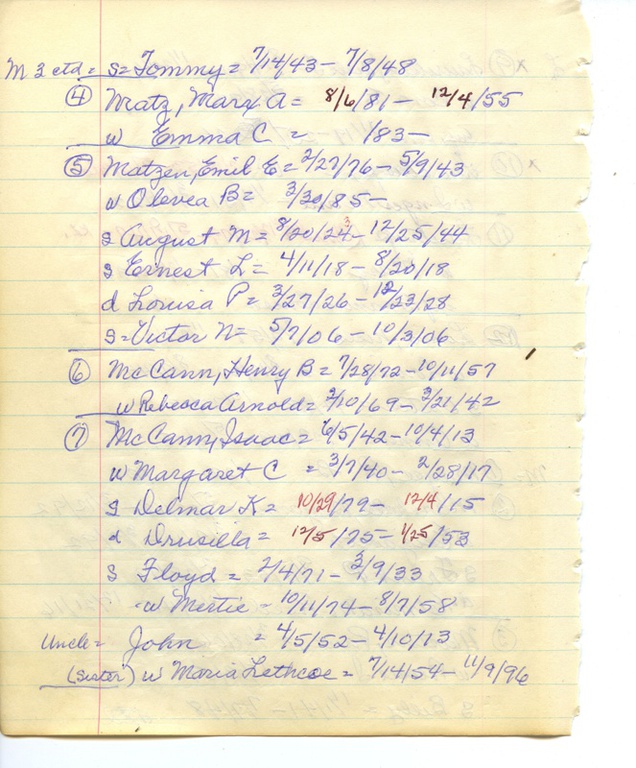 M 3 ctd = s = Tommy = 7/14/43 - 7/8/48
④ Matz, Marx A = 8/6/81 - 12/4/55
w Emma C = /83 -
⑤ Matzen, Emil E = 2/27/76 - 5/9/43
w Olevea B = 3/30/85 -
s August M = 8/20/24 3 - 12/25/44
s Ernest L = 4/11/18 - 8/20/18
d Louisa P = 3/27/26 - 12/23/28
s = Victor N = 5/7/06 - 10/3/06
⑥ McCann, Henry B = 7/28/72 - 10/11/57
w Rebecca Arnold = 2/10/69 - 3/21/42
⑦ McCann, Isaac = 6/5/42 - 10/4/13
w Margaret C = 3/7/40 - 2/28/17
s Delmar K = 10/29/79 - 12/4/15
d Drusilla = 12/5/75 - 1/25/53
s Floyd = 2/4/71 - 3/9/33
-w Mertie - 10/11/74 - 8/7/58
Uncle = John = 4/5/52 - 4/10/13
(sister) w Maria Lethcoe = 7/14/54 - 11/9/96